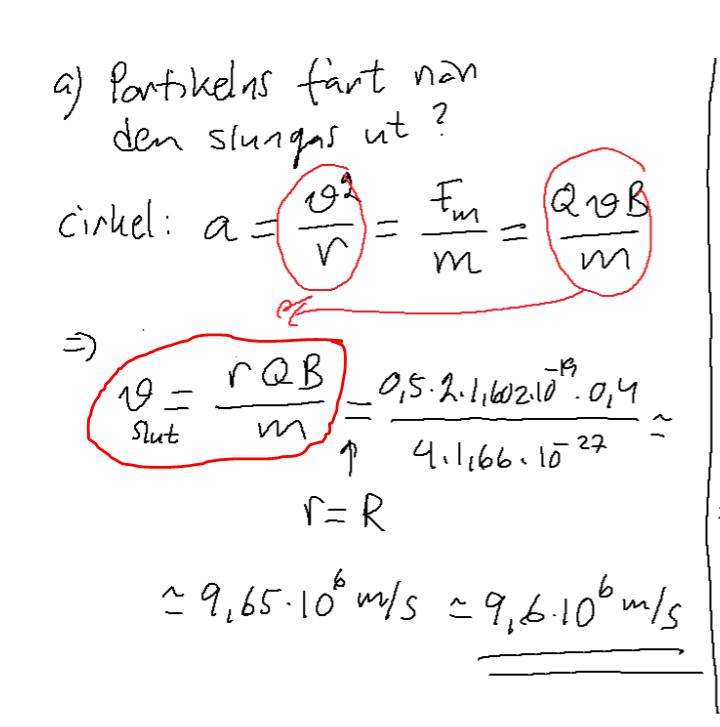 a) Partikelns fart när
den slungas ut?
cirkel: a = v²/r = Fm/m = QvB/m
⇒ v slut = rQB/m = 0,5·2·1,602·10⁻¹⁹·0,4 / 4·1,66·10⁻²⁷ ≃
↑
r = R
≃ 9,65·10⁶ m/s ≃ 9,6·10⁶ m/s